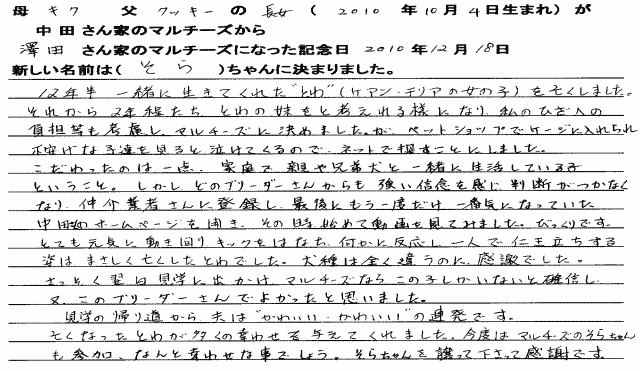 母 キク 父 クッキー の 長女 ( 2010 年 10 月 4 日生まれ ) が
中田さん家のマルチーズから
澤田 さん家のマルチーズになった記念日 2010 年 12 月 18 日
新しい名前は( そら )ちゃんに決まりました。
12年半 一緒に生きてくれた"とわ"(ケアン・テリアの女の子)を亡くしました。
それから2年程たち、とわの妹をと考えれる様になり、私のひざへの
負担等も考慮し、マルチーズに決めました。が、ペットショップでケージに入れられ
不安げな子達を見ると泣けてくるので、ネットで探すことにしました。
こだわったのは一点、家庭で親や兄弟犬と一緒に生活している子
ということ。しかし、どのブリーダーさんからも強い信念を感じ、判断がつかなく
なり、仲介業者さんに登録し、最後にもう一度だけ一番気になっていた
中田家のホームページを開き、その時、始めて動画を見てみました。びっくりです。
とても元気に動き回りキックをはなち、何かに反応し一人で仁王立ちする
姿はまさしく亡くしたとわでした。犬種は全く違うのに、感激でした。
さっそく翌日見学に出かけ、マルチーズならこの子しかいないと確信し、
又、このブリーダーさんでよかったと思いました。
見学の帰り道から夫は"かわいい・かわいい"の連発です。
亡くなったとわが多くの幸わせを与えてくれました。今度はマルチーズのそらちゃん
も参加、なんと幸わせな事でしょう。そらちゃんを譲って下さって感謝です。